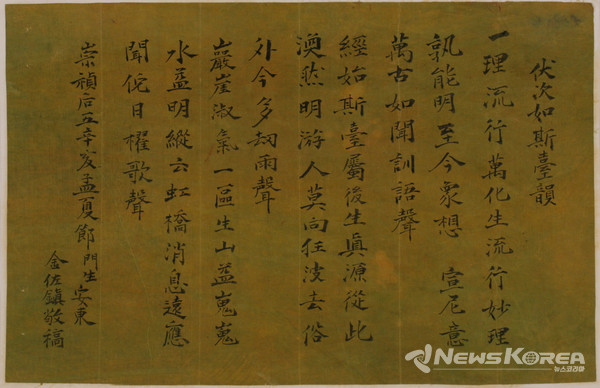 伏次如斯臺韻
一理流行萬化生流行妙理
孰能明至今象想 宣尼意
萬古如聞訓語聲
經始斯臺屬後生眞源從此
渙然明游人莫向狂波去俗
外今多刼雨聲
巖崖淑氣一區生山益嵬嵬
水益明縱云虹橋消息遠應
聞佗日櫂歌聲
崇禎后五辛亥孟夏節門生安東
金佐鎭敬稿
NEWSKOREA
뉴스코리아